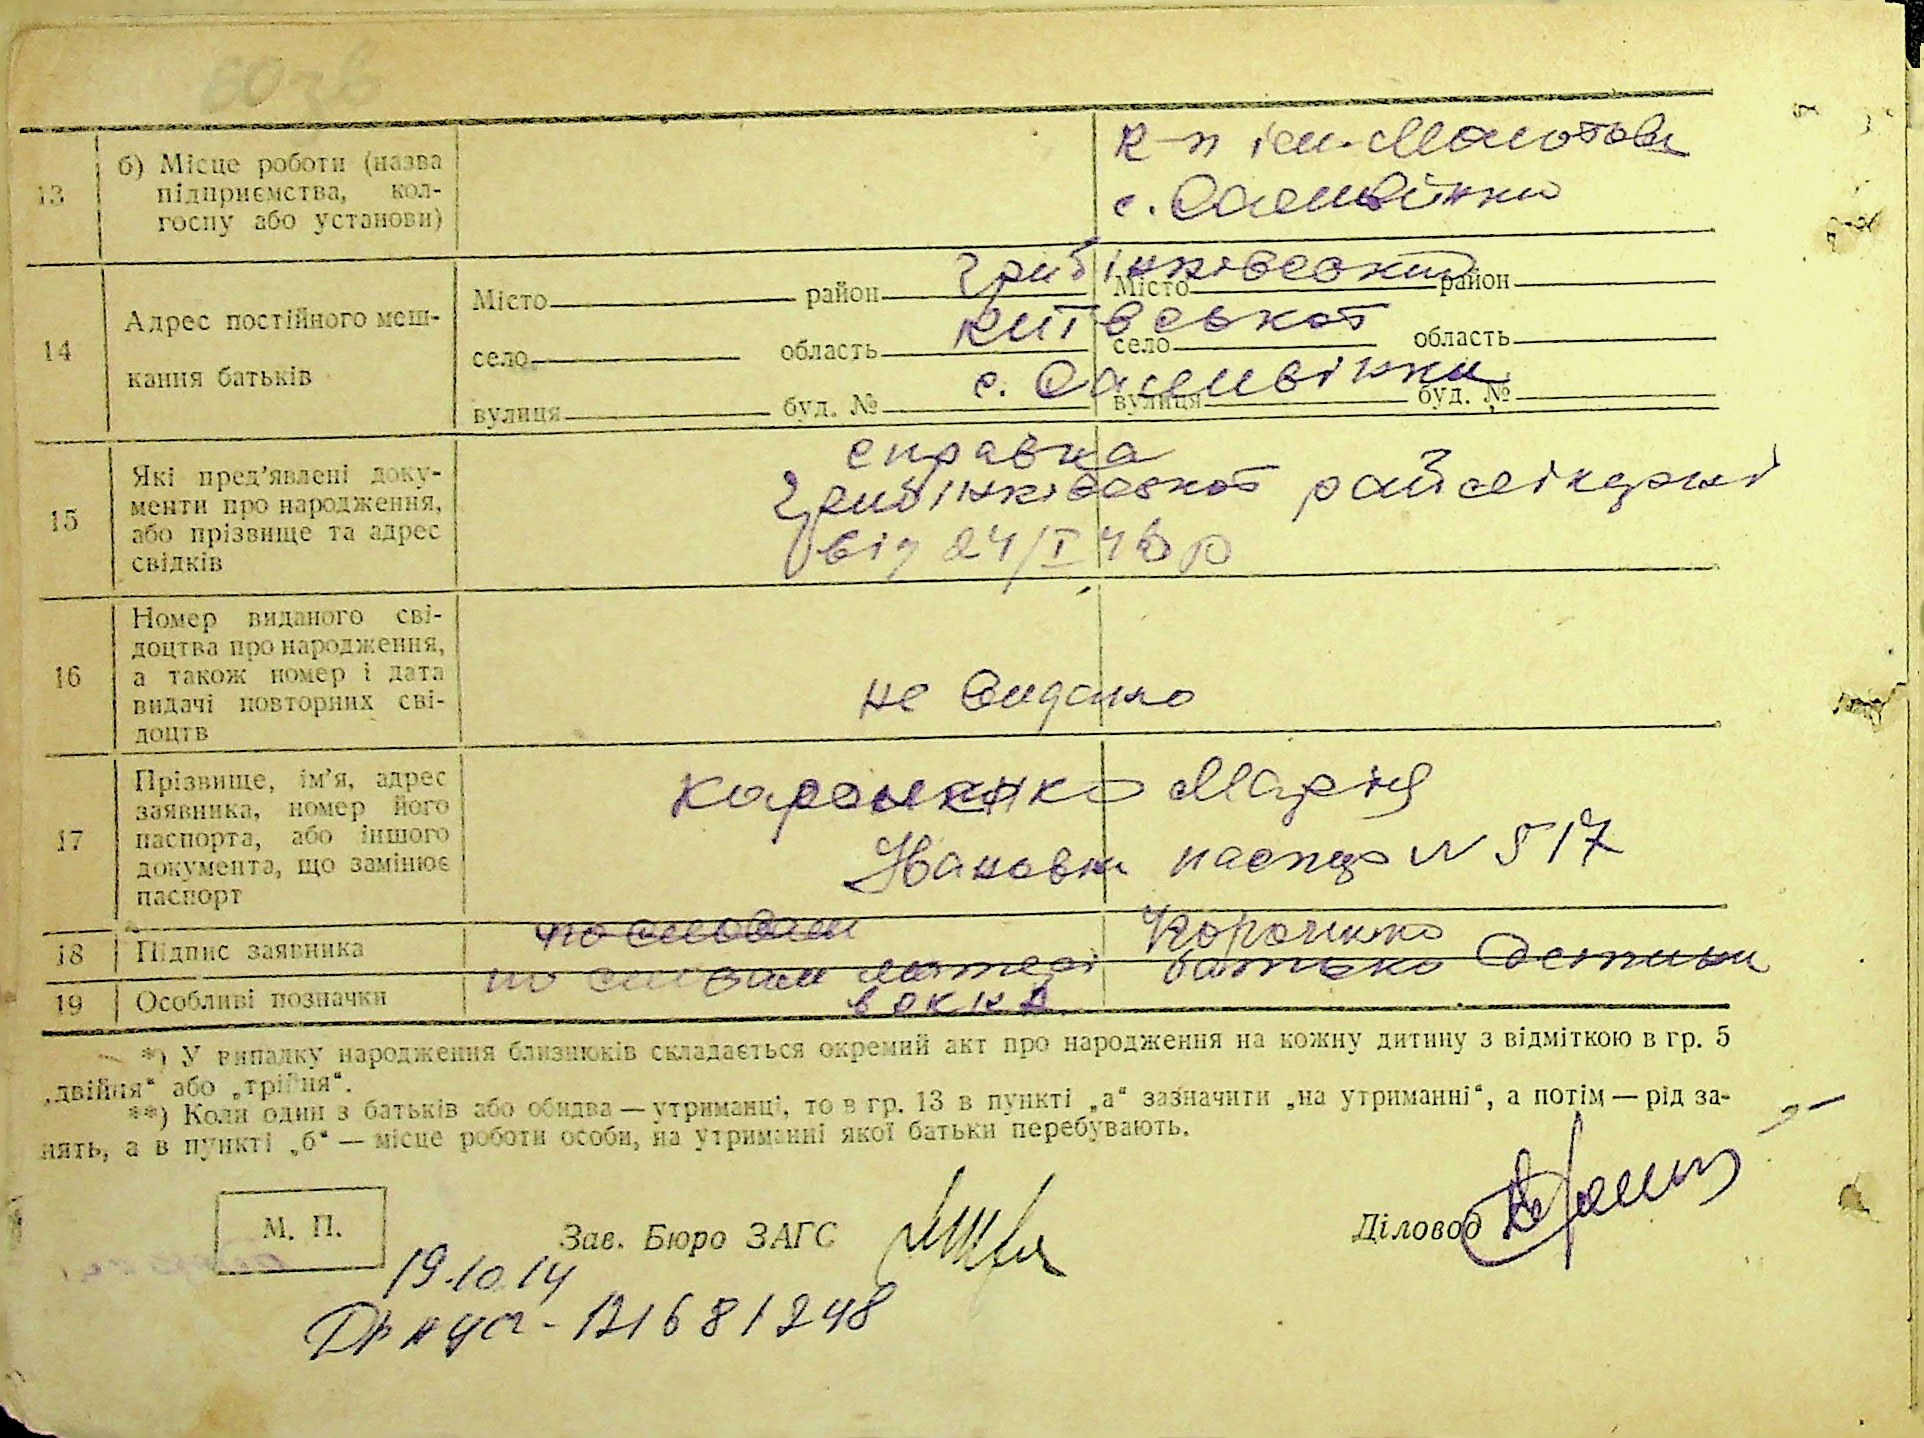 60 зв
13
б) Місце роботи (назва
підприємства, кол-
госпу або установи)
к-п ім. Молотова
с. Саливінки
14
Адрес постійного меш-
кання батьків
Місто район Місто район
Грибінківський
село область село область
Київської
вулиця буд. № вулиця буд. №
с. Саливінки
15
Які пред’явлені доку-
менти про народження,
або прізвище та адрес
свідків
справка
Грибінківскої райлікарні
від 24/I
16
Номер виданого сві-
доцтва про народження,
а також номер і дата
видачі повторних сві-
доцтв
не видано
17
Прізвище, ім’я, адрес
заявника, номер його
паспорта, або іншого
документа, що замінює
паспорт
Марія
Івановна паспорт N 517
18
Підпис заявника
по словам
19
Особливі позначки
по словам матері батько дитини
в ОКНА
*) У випадку народження близнюків складається окремий акт про народження на кожну дитину з відміткою в гр. 5
„двійня“ або „трійня“.
**) Коли один з батьків або обидва — утриманці, то в гр. 13 в пункті „а“ зазначити „на утриманні“, а потім — рід за-
нять, а в пункті „б“ — місце роботи особи, на утриманні якої батьки перебувають.
М. П.
Зав. Бюро ЗАГС
Діловод
19.10.14
121681248